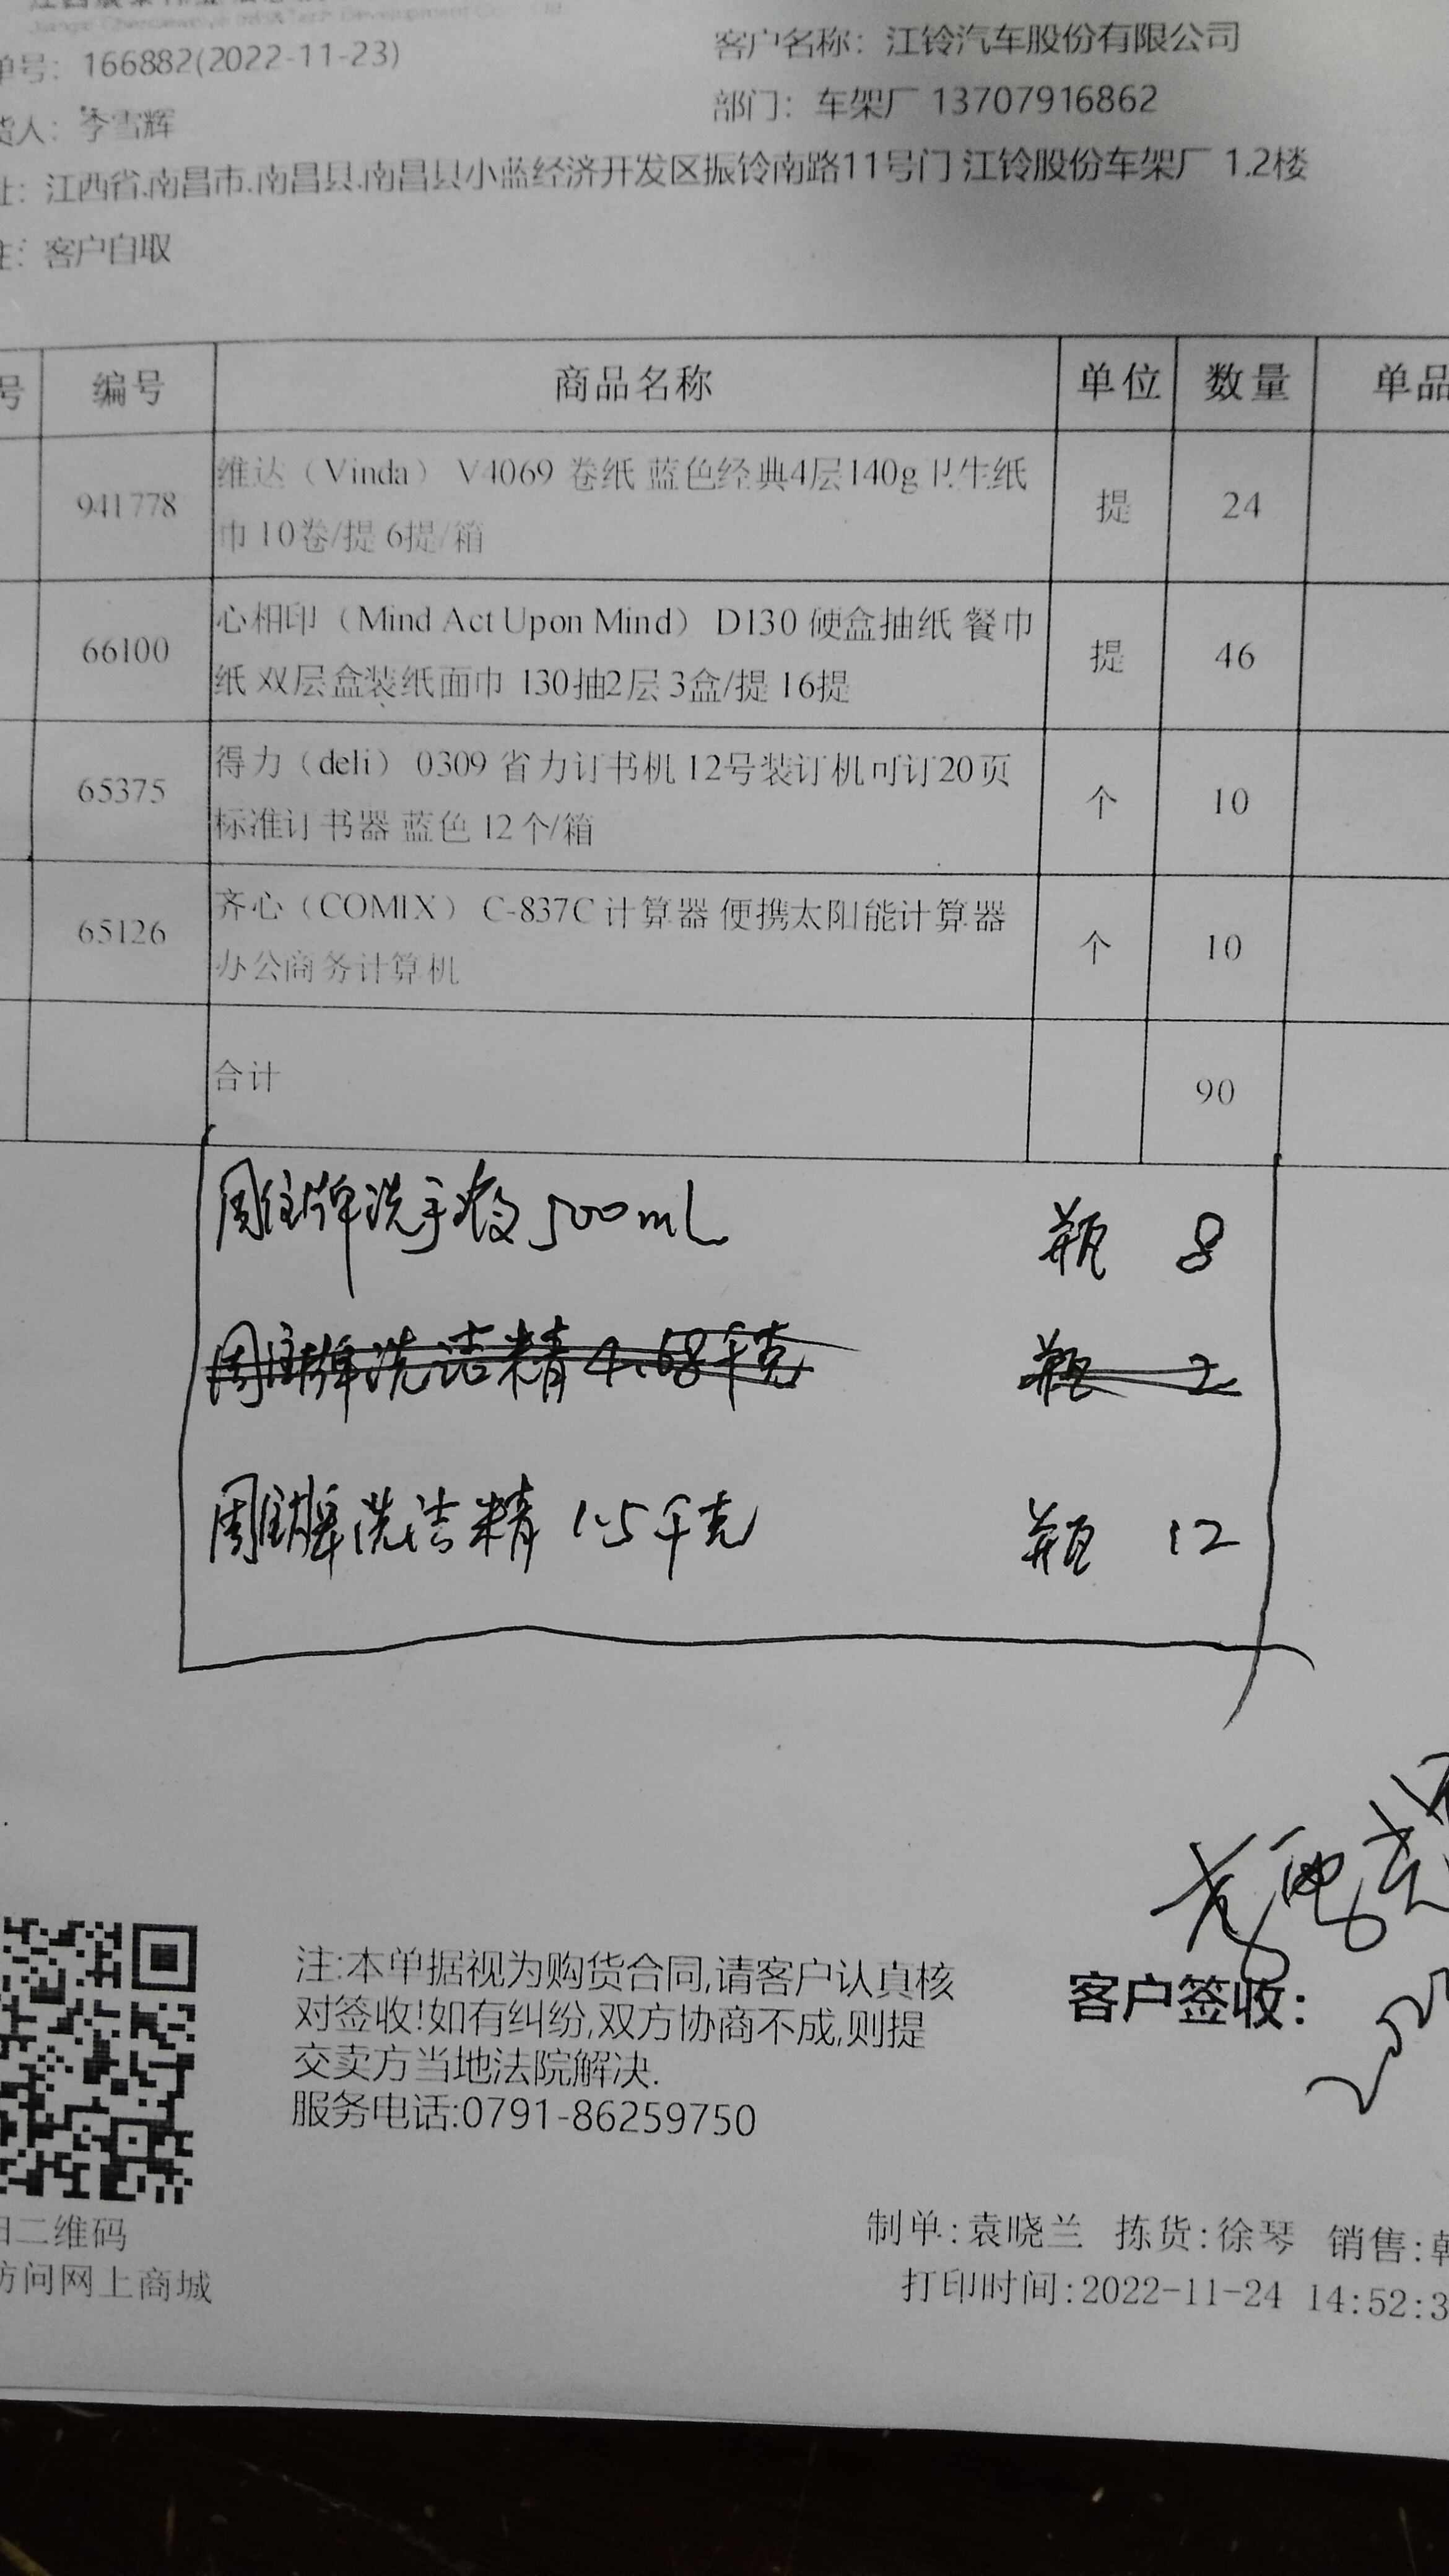 单号：166882(2022-11-23)
客户名称：江铃汽车股份有限公司
货人：李雪辉
部门：车架厂 13707916862
址：江西省.南昌市.南昌县.南昌县小蓝经济开发区振铃南路11号门 江铃股份车架厂 1.2楼
注：客户自取
号 编号 商品名称 单位 数量 单品
941778 维达（Vinda） V4069 卷纸 蓝色经典4层140g 卫生纸 提 24
巾 10卷/提 6提/箱
66100 心相印（Mind Act Upon Mind） D130 硬盒抽纸 餐巾 提 46
纸 双层盒装纸面巾 130抽2层 3盒/提 16提
65375 得力（deli） 0309 省力订书机 12号装订机可订20页 个 10
标准订书器 蓝色 12个/箱
65126 齐心（COMIX） C-837C 计算器 便携太阳能计算器 个 10
办公商务计算机
合计 90
雕牌洗手液 500mL 瓶 8
雕牌洗洁精 4.68千克 瓶 2
雕牌洗洁精 1.5千克 瓶 12
注:本单据视为购货合同,请客户认真核
对签收!如有纠纷,双方协商不成,则提
交卖方当地法院解决.
服务电话:0791-86259750
客户签收：
扫二维码
访问网上商城
制单:袁晓兰 拣货:徐琴 销售:韩
打印时间:2022-11-24 14:52:3